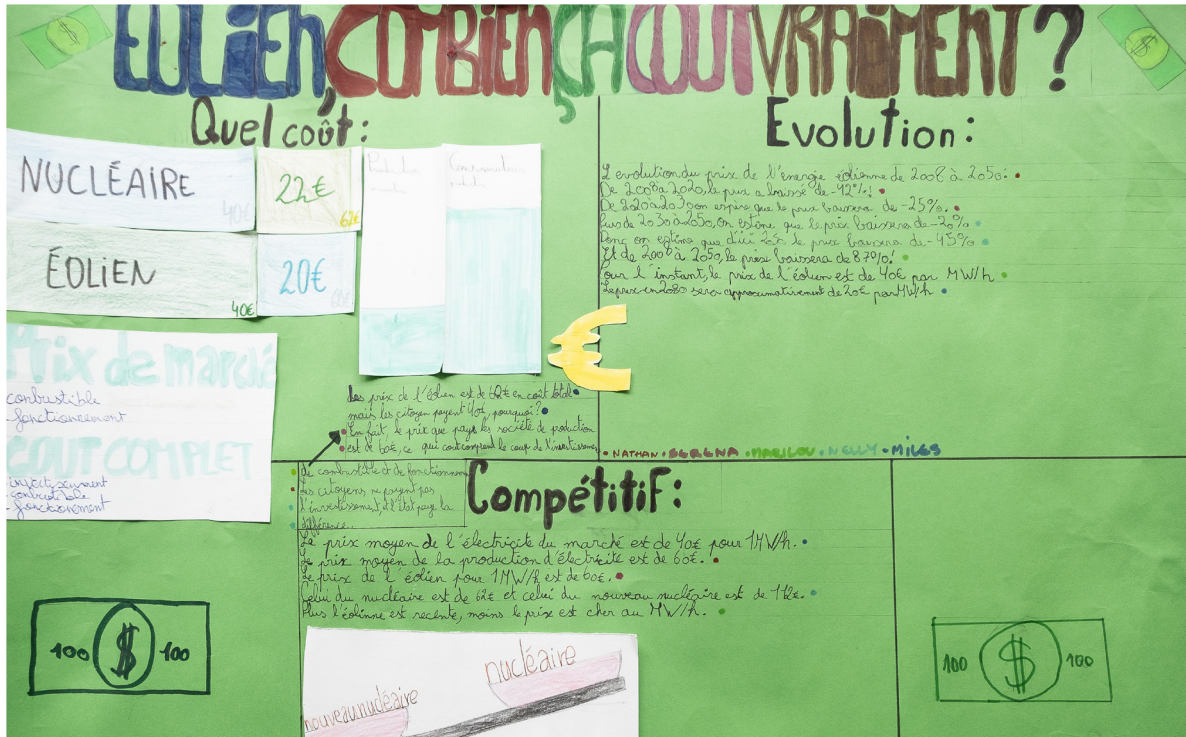 EOLIEN, COMBIEN ÇA COUT VRAIMENT ?
Quel coût :
NUCLÉAIRE
40€
22€
62€
ÉOLIEN
40€
20€
Prix de marché
combustible
- fonctionnement
COUT COMPLET
- investissement
- combustible
- fonctionnement
Les prix de l'éolien est de 62€ en coût total
mais les citoyen payent 40€, pourquoi ?
En fait, le prix que paye les société de production
est de 60€, ce qui comprend le coup de l'investissement
de combustible et de fonctionnement
Les citoyens ne payent pas
l'investissement, et l'état paye la
différence.
Evolution :
L'evolution du prix de l'énergie éolienne de 2008 à 2050 :
De 2008 à 2020, le prix a baissé de -42% !
De 2020 à 2030 on espère que le prix baissera de -25%.
Puis de 2030 à 2050, on estime que le prix baissera de -20%
Donc on estime que d'ici le prix baissera de -45%
Et de 2008 à 2050, le prix baissera de 87% !
Pour l'instant, le prix de l'éolien est de 40€ par MW/h.
Le prix en 2050 sera approximativement de 20€ par MW/h.
• NATHAN • SERENA • MARILOU • NELLY • MILES
Compétitif :
Le prix moyen de l'électricité du marché est de 40€ pour 1MW/h.
Le prix moyen de la production d'électricité est de 60€.
Le prix de l'éolien pour 1MW/h est de 60€.
Celui du nucléaire est de 62€ et celui du nouveau nucléaire est de 112€.
Plus l'éolinne est recente, moins le prix est cher au MW/h.
nucléaire
nouveau nucléaire
100 $ 100
100 $ 100